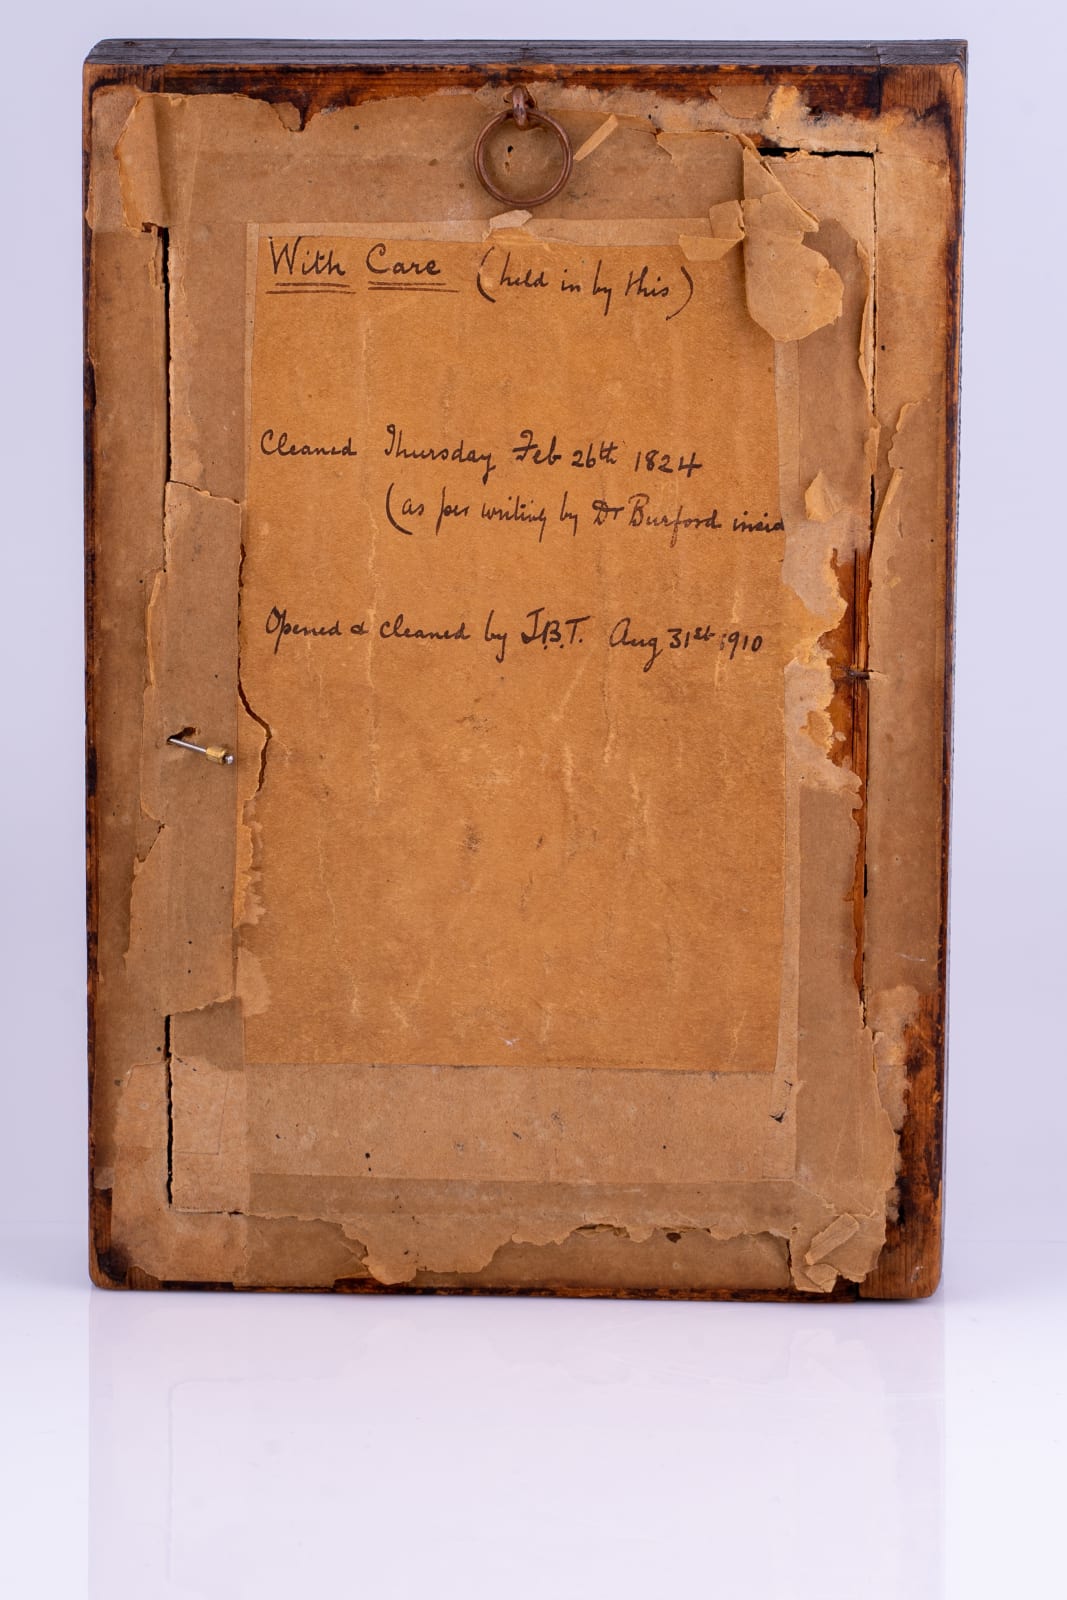 With Care (held in by this)
Cleaned Thursday Feb 26th 1824
(as per writing by Dr Burford insid
Opened & cleaned by J.B.T. Aug 31st 1910